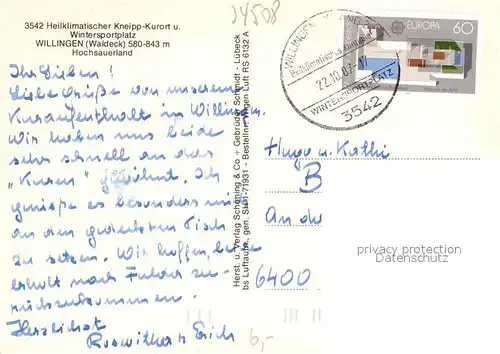 3542 Heilklimatischer Kneipp-Kurort u.
Wintersportplatz
WILLINGEN (Waldeck) 580-843 m
Hochsauerland
34508
Ihr Lieben!
Liebe Grüße von unserem
Kuraufenthalt in Willingen.
Wir haben uns beide
sehr schnell an das
"Kuren" gewöhnt. Ich
genieße es besonders mich
an den gedeckten Tisch
zu setzen. Wir hoffen, beide
erholt nach Fulda zu-
rückzukommen.
Herzlichst
Roswitha u. Erich
6,-
Herst. u. Verlag Schöning & Co + Gebrüder Schmidt - Lübeck
bs Luftaufn., gen. SH 1-71931 - Bestellnr. Wigen Luft RS 6132 A
WILLINGEN
Heilklimatischer
22.10.87-17
WINTERSPORTPLATZ
3542
EUROPA 60
Hugo u. Kathi
B
An de
6400
privacy protection
Datenschutz